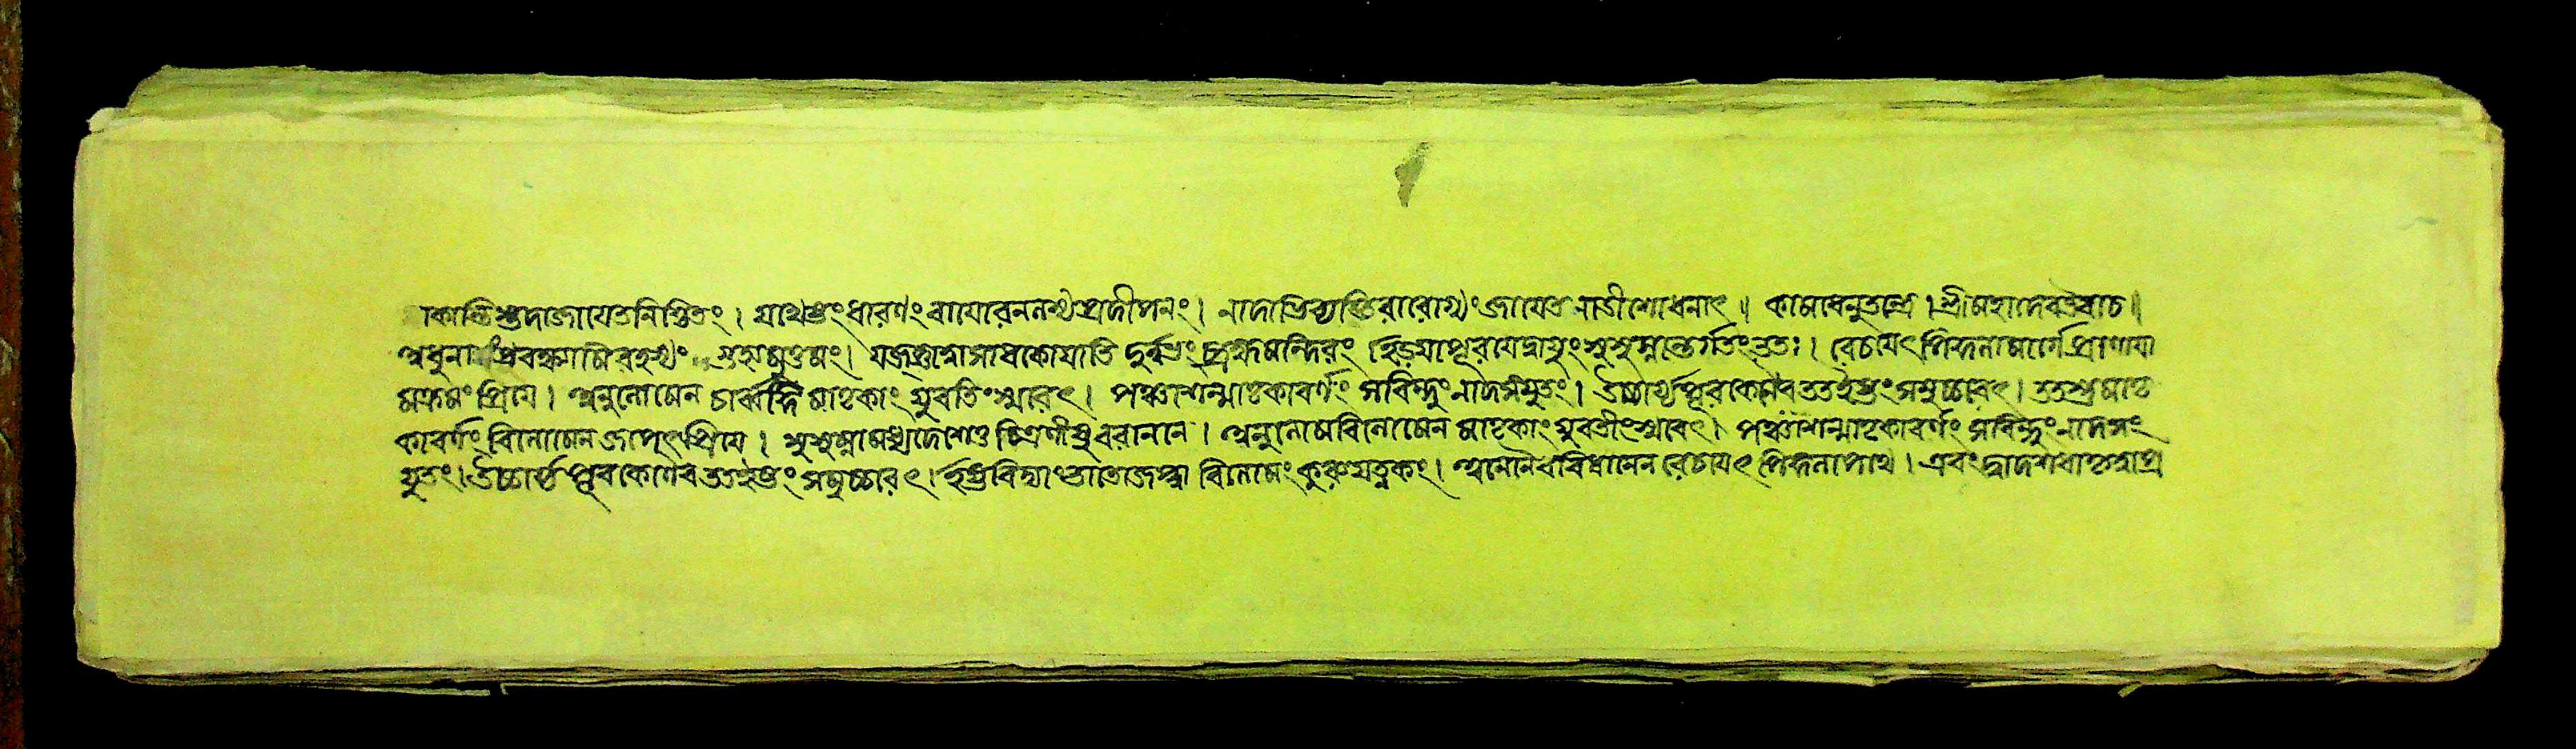 কান্তিস্তদাজায়েতনিশ্চিতং। যথেষ্টংধারণংবায়োরনলস্যপ্রদীপনং। নাদাভিব্যক্তিরারোগ্যংজায়েতনাডীশোধনাৎ॥ কামধেনুতন্ত্রে। শ্রীমহাদেবউবাচ॥
অধুনাসংপ্রবক্ষ্যামিরহস্যং মুত্তমং। যজ্‌জ্ঞাত্বাসাধকোযাতি দুর্ল্লভংব্রহ্মমন্দিরং ইডয়াপূরয়েদ্বায়ুংসুসুম্নান্তর্গতংততঃ। রেচয়েৎপিঙ্গলামার্গেপ্রাণায়া
মক্রমংপ্রিয়ে। অনুলোমেন চার্ব্বঙ্গিমাতৃকাংযুবতিংস্মরেৎ। পঞ্চাশন্মাতৃকাবর্ণং সবিন্দুংনাদসংযুতং। উচ্চার্য্যপূরকেনৈবততইষ্টংসমুচ্চরেৎ। ততশ্চমাতৃ
কাবর্ণং বিলোমেনজপেৎপ্রিয়ে। সুসুম্নামধ্যদেশেতুচিত্রিণীসুবরাননে। অনুলোমবিলোমেন মাতৃকাংযুবতীংস্মরেৎ। পঞ্চাশন্মাতৃকাবর্ণং সবিন্দুংনাদসং
যুতং। উচ্চার্য্যপূরকেণৈবততইষ্টংসমুচ্চরেৎ। বিলোমং অনেনৈববিধানেন রেচয়েৎপিঙ্গলাপথে। এবংদ্বাদশধা